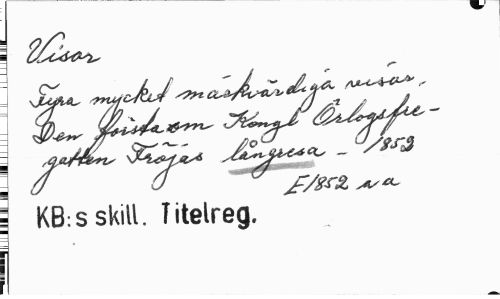 Visor
Fyra mycket märkvärdiga visor.
Den första om Kongl Örlogsfre-
gatten Fröjas långresa - 1852
E1852 va
KB:s skill. Titelreg.